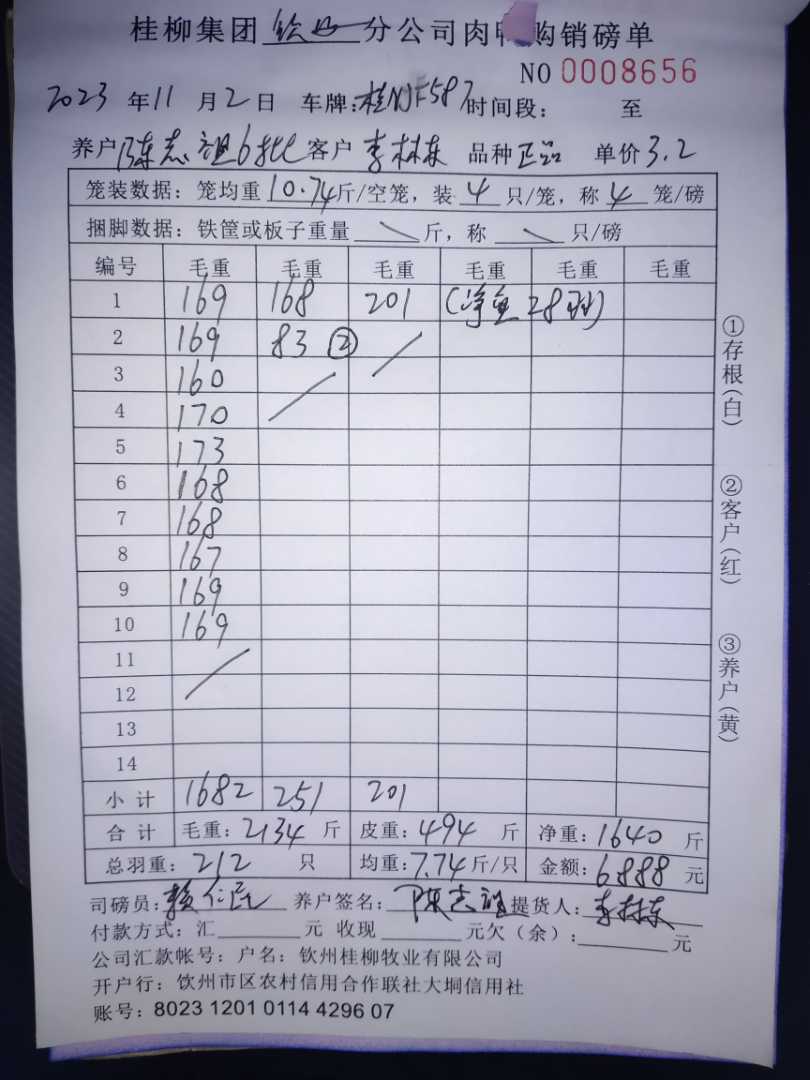 桂柳集团 分公司肉鸭购销磅单
NO 0008656
2023 年 11 月 2 日 车牌:桂NJF587 时间段: 至
养户 陈志祖6批 客户 李林东 品种 正品 单价 3.2
笼装数据: 笼均重 10.74 斤/空笼, 装 4 只/笼, 称 4 笼/磅
捆脚数据: 铁筐或板子重量 \ 斤, 称 \ 只/磅
编号 毛重 毛重 毛重 毛重 毛重 毛重
1 169 168 201 (净重 28羽)
2 169 83 ②
3 160
4 170
5 173
6 168
7 168
8 167
9 169
10 169
11
12
13
14
小计 1682 251 201
合计 毛重: 2134 斤 皮重: 494 斤 净重: 1640 斤
总羽重: 212 只 均重: 7.74 斤/只 金额: 6888 元
司磅员: 赖仁 养户签名: 陈志祖 提货人: 李林东
付款方式: 汇 元 收现 元欠(余): 元
公司汇款帐号: 户名: 钦州桂柳牧业有限公司
开户行: 钦州市区农村信用合作联社大垌信用社
账号: 8023 1201 0114 4296 07
①存根(白)
②客户(红)
③养户(黄)